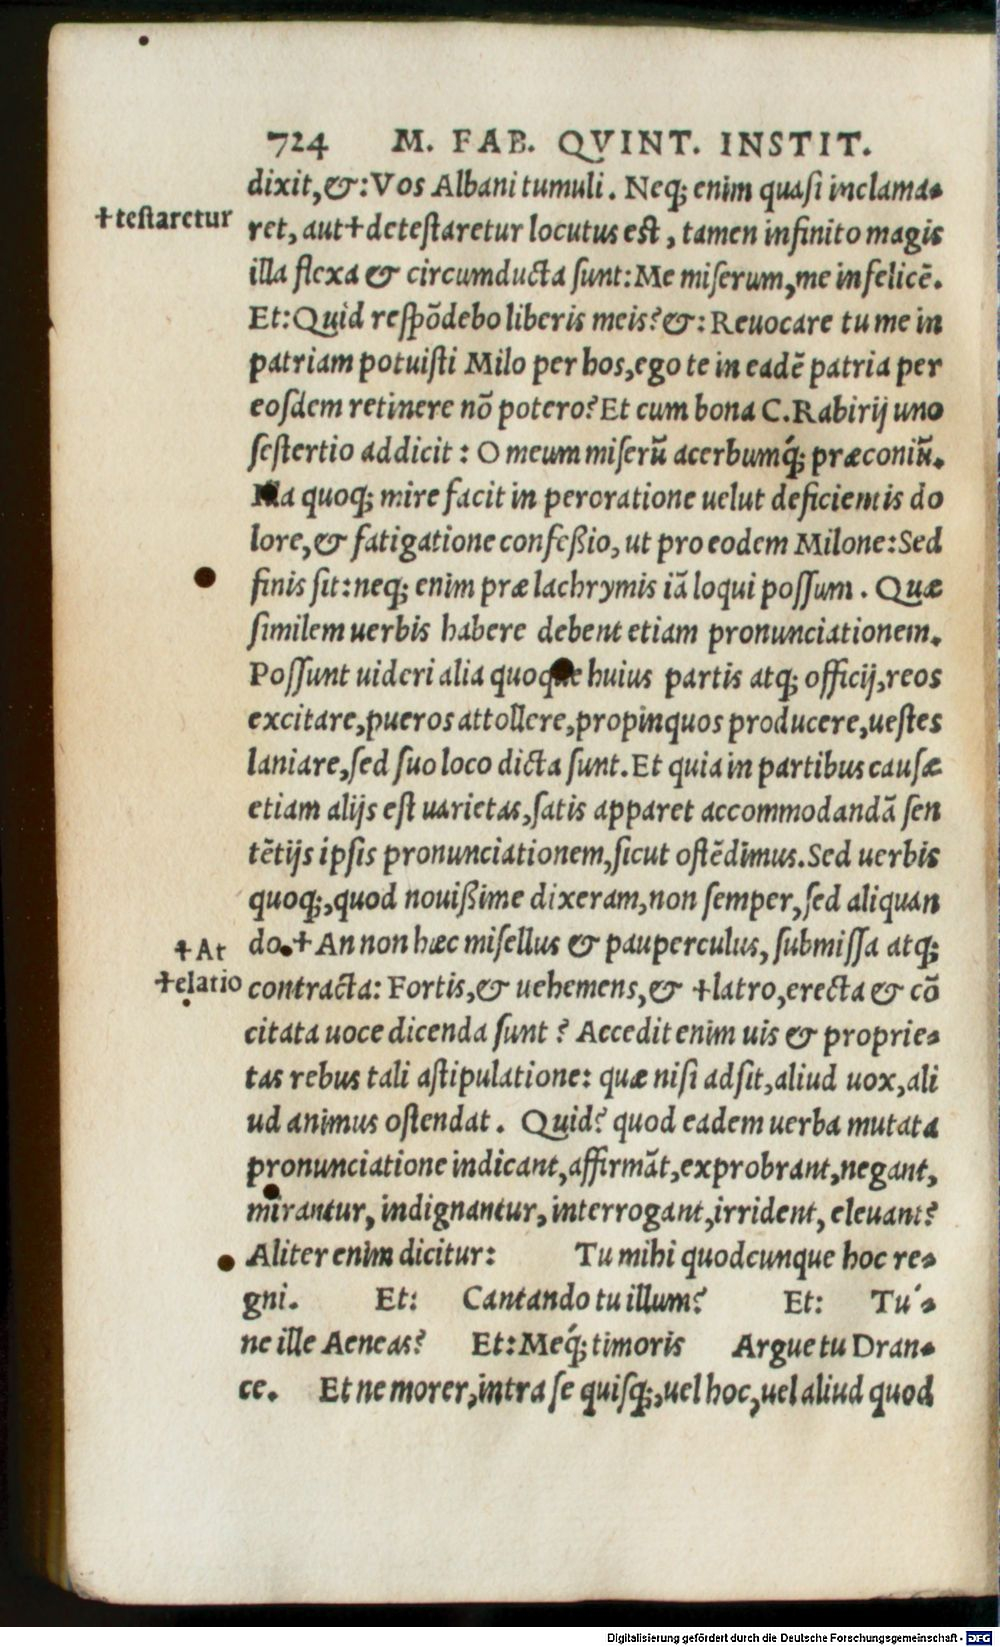 724 M. FAB. QVINT. INSTIT.
dixit,&:Vos Albani tumuli. Neq; enim quasi inclama-
+testaretur
ret, aut+detestaretur locutus est, tamen infinito magis
illa flexa & circumducta sunt:Me miserum,me infelicē.
Et:Quid respōdebo liberis meis?&:Reuocare tu me in
patriam potuisti Milo per hos,ego te in eadē patria per
eosdem retinere nō potero?Et cum bona C.Rabirij uno
sestertio addicit: O meum miserū acerbumq́; præconiū.
Illa quoq; mire facit in peroratione uelut deficientis do
lore,& fatigatione confeßio, ut pro eodem Milone:Sed
finis sit:neq; enim præ lachrymis iā loqui possum. Quæ
similem uerbis habere debent etiam pronunciationem.
Possunt uideri alia quoque huius partis atq; officij,reos
excitare,pueros attollere,propinquos producere,uestes
laniare,sed suo loco dicta sunt.Et quia in partibus causæ
etiam alijs est uarietas,satis apparet accommodandā sen
tētijs ipsis pronunciationem,sicut ostēdimus.Sed uerbis
quoq;,quod nouißime dixeram,non semper,sed aliquan
+At
do.+An non hæc misellus & pauperculus, submissa atq;
+elatio
contracta: Fortis,& uehemens,& +latro,erecta & cō
citata uoce dicenda sunt? Accedit enim uis & proprie-
tas rebus tali astipulatione: quæ nisi adsit,aliud uox,ali
ud animus ostendat. Quid? quod eadem uerba mutata
pronunciatione indicant,affirmāt,exprobrant,negant,
mirantur, indignantur,interrogant,irrident, eleuant?
Aliter enim dicitur: Tu mihi quodcunque hoc re-
gni. Et: Cantando tu illum? Et: Tu'-
ne ille Aeneas? Et:Meq́; timoris Argue tu Dran-
ce. Et ne morer,intra se quisq;,uel hoc,uel aliud quod
Digitalisierung gefördert durch die Deutsche Forschungsgemeinschaft - DFG